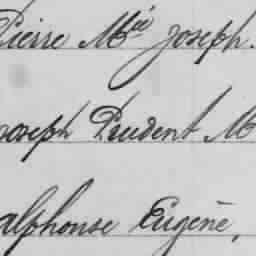 Pierre Mie Joseph.
Joseph Prudent M
alphonse Eugène,